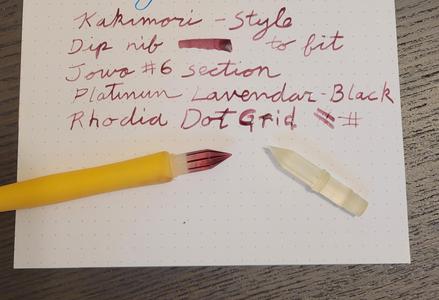 Kakimori - Style
Dip nib to fit
Jowo #6 section
Platinum Lavendar-Black
Rhodia Dot Grid #